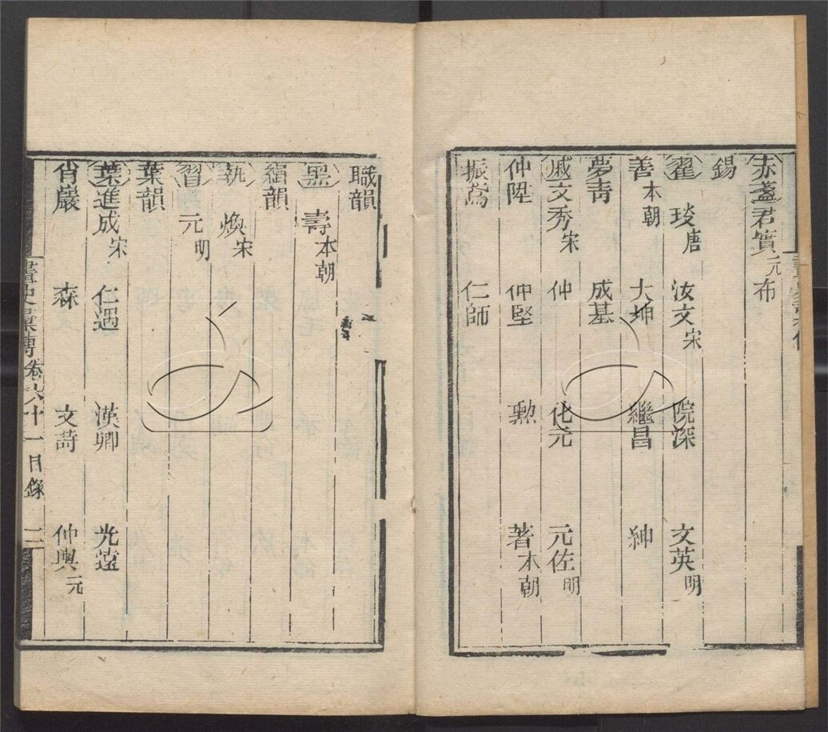 赤盞君實元布
錫
翟 琰唐 汝文宋 院深 文英明
善本朝 大坤 繼昌 紳
夢青 成基
戚文秀宋 仲 化元 元佐明
仲陞 仲堅 勲 著本朝
振鳶 仁師
職韻
黑 壽本朝
緝韻
執 煥宋
習 元明
葉韻
葉進成宋 仁遇 漢卿 光遠
肖巖 森 文蒔 仲輿元
畫史彙傳卷六十一目錄 二